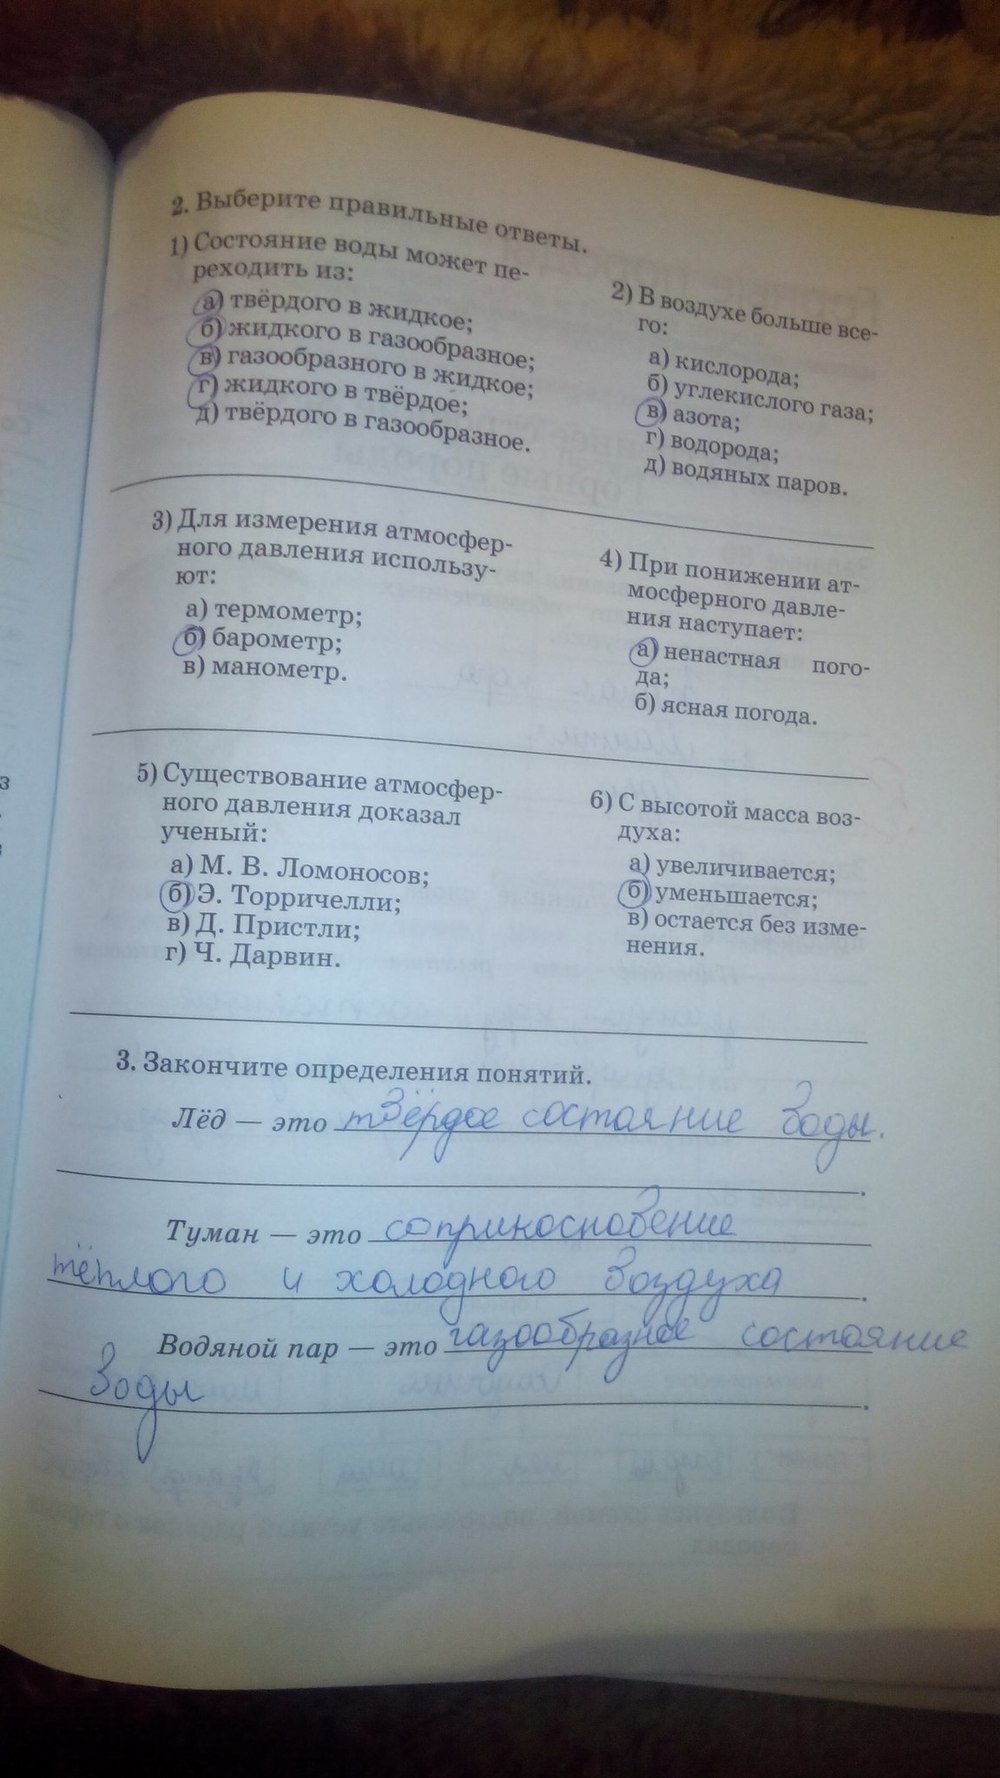 2. Выберите правильные ответы.
1) Состояние воды может пе-
реходить из:
а) твёрдого в жидкое;
б) жидкого в газообразное;
в) газообразного в жидкое;
г) жидкого в твёрдое;
д) твёрдого в газообразное.
2) В воздухе больше все-
го:
а) кислорода;
б) углекислого газа;
в) азота;
г) водорода;
д) водяных паров.
3) Для измерения атмосфер-
ного давления использу-
ют:
а) термометр;
б) барометр;
в) манометр.
4) При понижении ат-
мосферного давле-
ния наступает:
а) ненастная пого-
да;
б) ясная погода.
5) Существование атмосфер-
ного давления доказал
ученый:
а) М. В. Ломоносов;
б) Э. Торричелли;
в) Д. Пристли;
г) Ч. Дарвин.
6) С высотой масса воз-
духа:
а) увеличивается;
б) уменьшается;
в) остается без изме-
нения.
3. Закончите определения понятий.
Лёд — это твёрдое состояние воды.
Туман — это соприкосновение
тёплого и холодного воздуха.
Водяной пар — это газообразное состояние
воды.